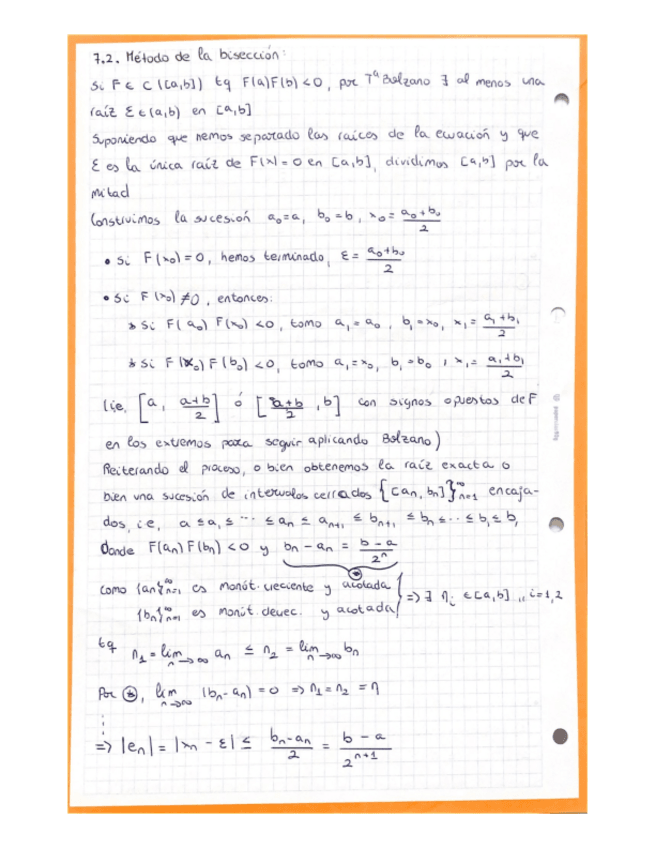 7.2. Método de la bisección:
Si F ∈ C([a,b]) tq F(a)F(b) < 0, por Tª Bolzano ∃ al menos una
raíz ξ ∈ (a,b) en [a,b]
Suponiendo que hemos separado las raíces de la ecuación y que
ξ es la única raíz de F(x) = 0 en [a,b], dividimos [a,b] por la
mitad
Construimos la sucesión a₀=a, b₀=b, x₀ = (a₀+b₀)/2
• Si F(x₀) = 0, hemos terminado, ξ = (a₀+b₀)/2
• Si F(x₀) ≠ 0, entonces:
* Si F(a₀) F(x₀) < 0, tomo a₁ = a₀, b₁ = x₀, x₁ = (a₁+b₁)/2
* Si F(x₀) F(b₀) < 0, tomo a₁ = x₀, b₁ = b₀, x₁ = (a₁+b₁)/2
(i.e, [a, (a+b)/2] ó [(a+b)/2, b] con signos opuestos de F
en los extremos para seguir aplicando Bolzano)
Reiterando el proceso, o bien obtenemos la raíz exacta o
bien una sucesión de intervalos cerrados {[an, bn]}∞n=1 encaja-
dos, i.e, a ≤ a₁ ≤ ... ≤ an ≤ an+1 ≤ bn+1 ≤ bn ≤ ... ≤ b₁ ≤ b,
donde F(an) F(bn) < 0 y bn - an = (b - a)/2ⁿ
⊛
Como {an}∞n=1 es monót. creciente y acotada
{bn}∞n=1 es monót. decrec. y acotada } => ∃ ηi ∈ [a,b] ,, i=1,2
tq η₁ = lim n→∞ an ≤ η₂ = lim n→∞ bn
Por ⊛, lim n→∞ (bn - an) = 0 => η₁ = η₂ = η
⋮
=> |en| = |xn - ξ| ≤ (bn - an)/2 = (b - a)/2ⁿ⁺¹